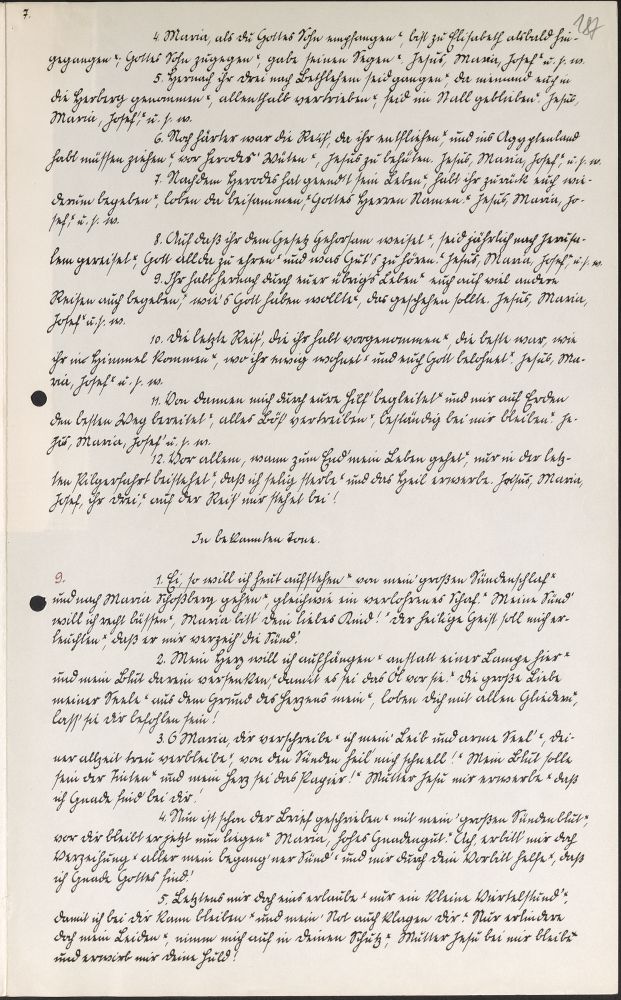 7.
187
4. Maria, als du Gottes Sohn empfangen ‘, bist zu Elisabeth alsbald hin-
gegangen ‘; Gottes Sohn zugegen ‘, gabe seinen Segen ‘, Jesus, Maria, Josef ‘ u. s. w.
5. Hernach ihr drei nach Bethlehem seid gangen ‘ da niemand euch in
die Herberg genommen ‘, allenthalb vertrieben ‘ seid im Stall geblieben ‘. Jesus,
Maria, Josef,‘ u. s. w.
6. Noch härter war die Reis’, da ihr entfliehen ‘, und ins Aegyptenland
habt müssen ziehen ‘ vor Herodes’ Wüten ‘, Jesus zu behüten. Jesus, Maria, Josef,‘ u. s. w.
7. Nachdem Herodes hat geend’t sein Leben ‘ habt ihr zurück euch wie-
derum begeben ‘, loben da beisammen ‘ Gottes Herren Namen. ‘ Jesus, Maria, Jo-
sef,‘ u. s. w.
8. Auch daß ihr dem Gesetz Gehorsam weiset ‘, seid jährlich nach Jerusa-
lem gereiset ‘, Gott allda zu ehren ‘ und was Gut’s zu hören. ‘ Jesus, Maria, Josef,‘ u. s. w.
9. Ihr habt hernach durch euer übrigs Leben ‘ euch auf viel andere
Reisen auch begeben,‘ wie’s Gott haben wollte ‘, das geschehen sollte. Jesus, Maria,
Josef ‘ u. s. w.
10. Die letzte Reis’, die ihr habt vorgenommen ‘, die beste war, wie
ihr in Himmel kommen ‘, wo ihr ewig wohnet ‘ und euch Gott belohnet ‘. Jesus, Ma-
ria, Josef ‘ u. s. w.
11. Von dannen mich durch eure Hilf’ begleitet ‘ und mir auf Erden
den besten Weg bereitet ‘, alles Bös’ vertreiben ‘, beständig bei mir bleiben ‘ Je-
sus, Maria, Josef ‘ u. s. w.
12. Vor allem, wann zum End’ mein Leben gehet ‘, nur in der letz-
ten Pilgerfahrt beistehet ‘, daß ich selig sterbe ‘ und das Heil erwerbe. Jesus, Maria,
Josef, ihr drei,‘ auf der Reis’ mir stehet bei!
In bekannten Tone.
9.
1. Ei, so will ich heut aufstehen ‘ von mein’ großen Sündenschlaf ‘
und nach Maria Schoßberg gehen ‘ gleichwie ein verlohrenes Schaf. ‘ Meine Sünd’
will ich recht büssen ‘, Maria bitt’ dein liebes Kind! ‘ Der heilige Geist soll mich er-
leuchten ‘, daß er mir verzeih’ die Sünd’.
2. Mein Herz will ich aufhängen ‘ anstatt einer Lampe hier ‘
und mein Blut darein versenken,‘ damit es sei das Öl vor sie. ‘ Die große Liebe
meiner Seele ‘ aus dem Grund des Herzens mein ‘, loben dich mit allen Gliedern ‘,
lass’ sie dir befohlen sein!
3. O Maria, dir verschreibe ‘ ich mein’ Leib und arme Seel’ ‘, dei-
ner allzeit treu verbleibe ‘, von den Sünden heil’ mich schnell! ‘ Mein Blut solle
sein der Tinten ‘ und mein Herz sei das Papier! ‘ Mutter Jesu mir erwerbe ‘ daß
ich Gnade find’ bei dir!
4. Nun ist schon der Brief geschrieben ‘ mit mein’ großen Sündenblut ‘,
vor dir bleibt er jetzt nun liegen ‘ Maria, hohes Gnadengut. ‘ Ach, erbitt’ mir doch
Verzeihung ‘ aller mein begang’ner Sünd’ ‘ und mir durch dein Vorbitt helfe ‘, daß
ich Gnade Gottes find.’
5. Letztens mir doch eins erlaube ‘ nur ein kleine Viertelstund’ ‘,
damit ich bei dir kann bleiben ‘ und mein’ Not auch klagen dir. ‘ Nur erlindere
doch mein Leiden ‘, nimm mich auf in deinen Schutz ‘, Mutter Jesu bei mir bleibe ‘
und erwirb mir deine Huld!